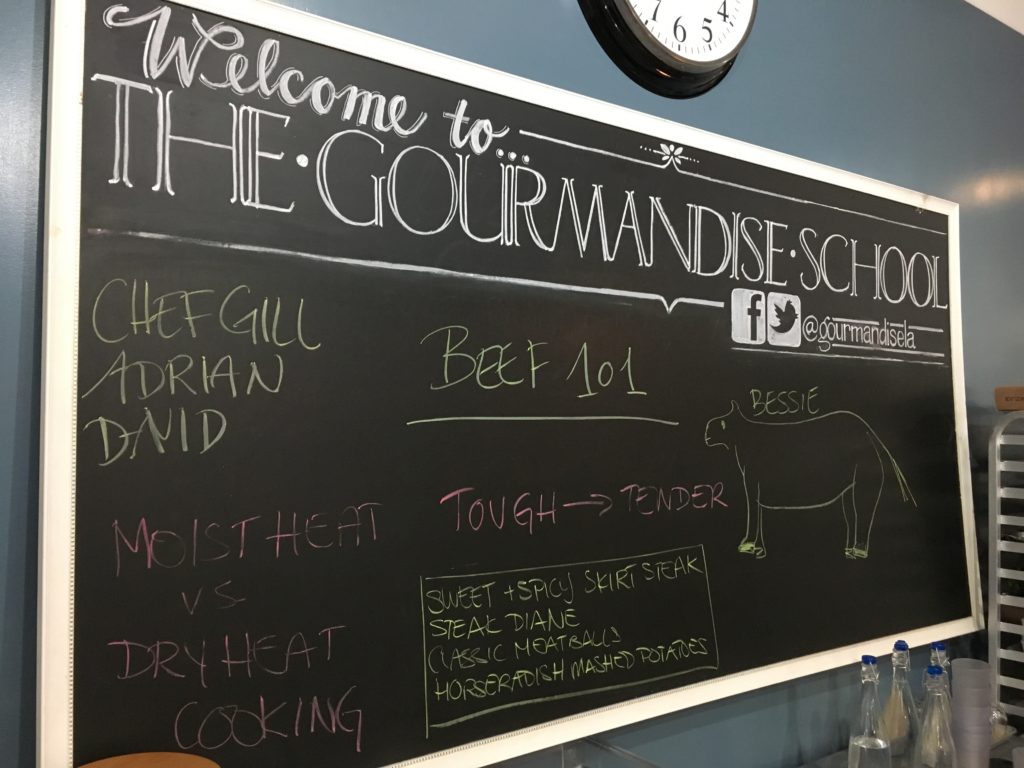 Welcome to...
THE·GOURMANDISE·SCHOOL
@gourmandisela
CHEF GILL
ADRIAN
DAVID
BEEF 101
BESSIE
MOIST HEAT
VS
DRY HEAT
COOKING
TOUGH → TENDER
SWEET + SPICY SKIRT STEAK
STEAK DIANE
CLASSIC MEATBALLS
HORSERADISH MASHED POTATOES
7 6 5 4